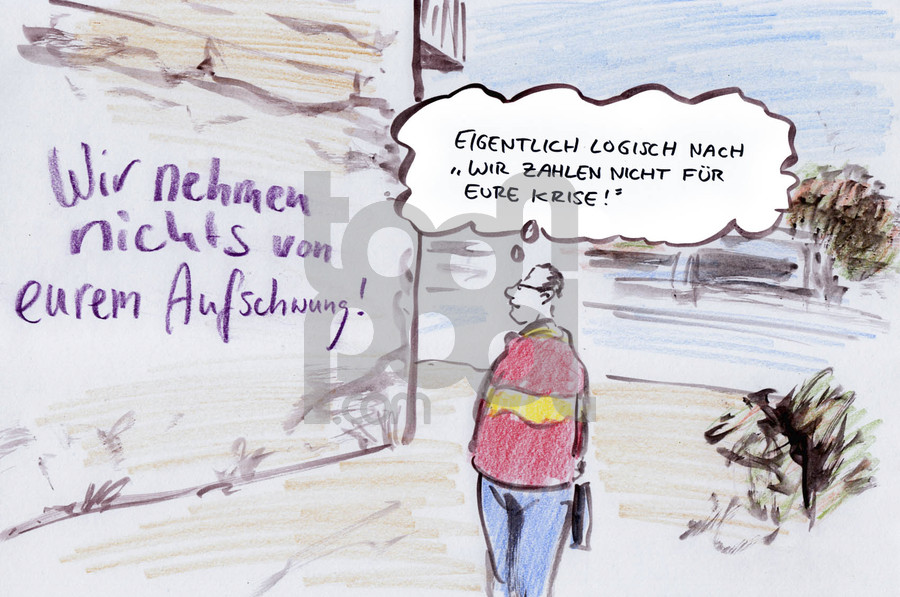 Wir nehmen
nichts von
eurem Aufschwung!
EIGENTLICH LOGISCH NACH
„WIR ZAHLEN NICHT FÜR
EURE KRISE!"
toonpool
.com